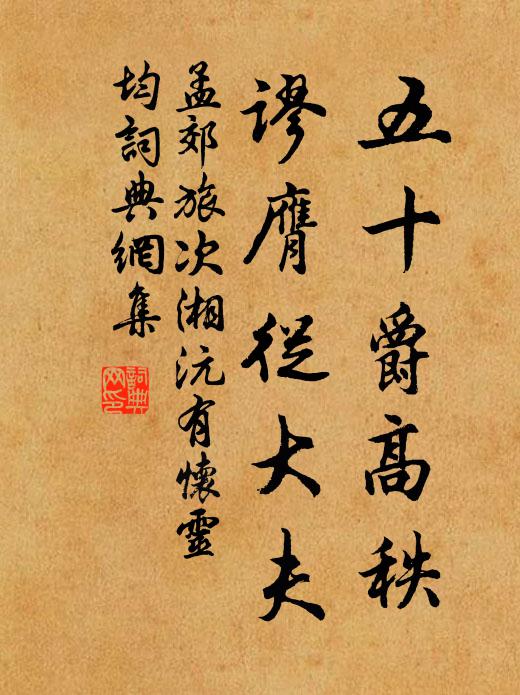 五十爵高秩
謬膺從大夫
孟郊旅次湘沅有懷靈
均詞典網集
詞典
网印